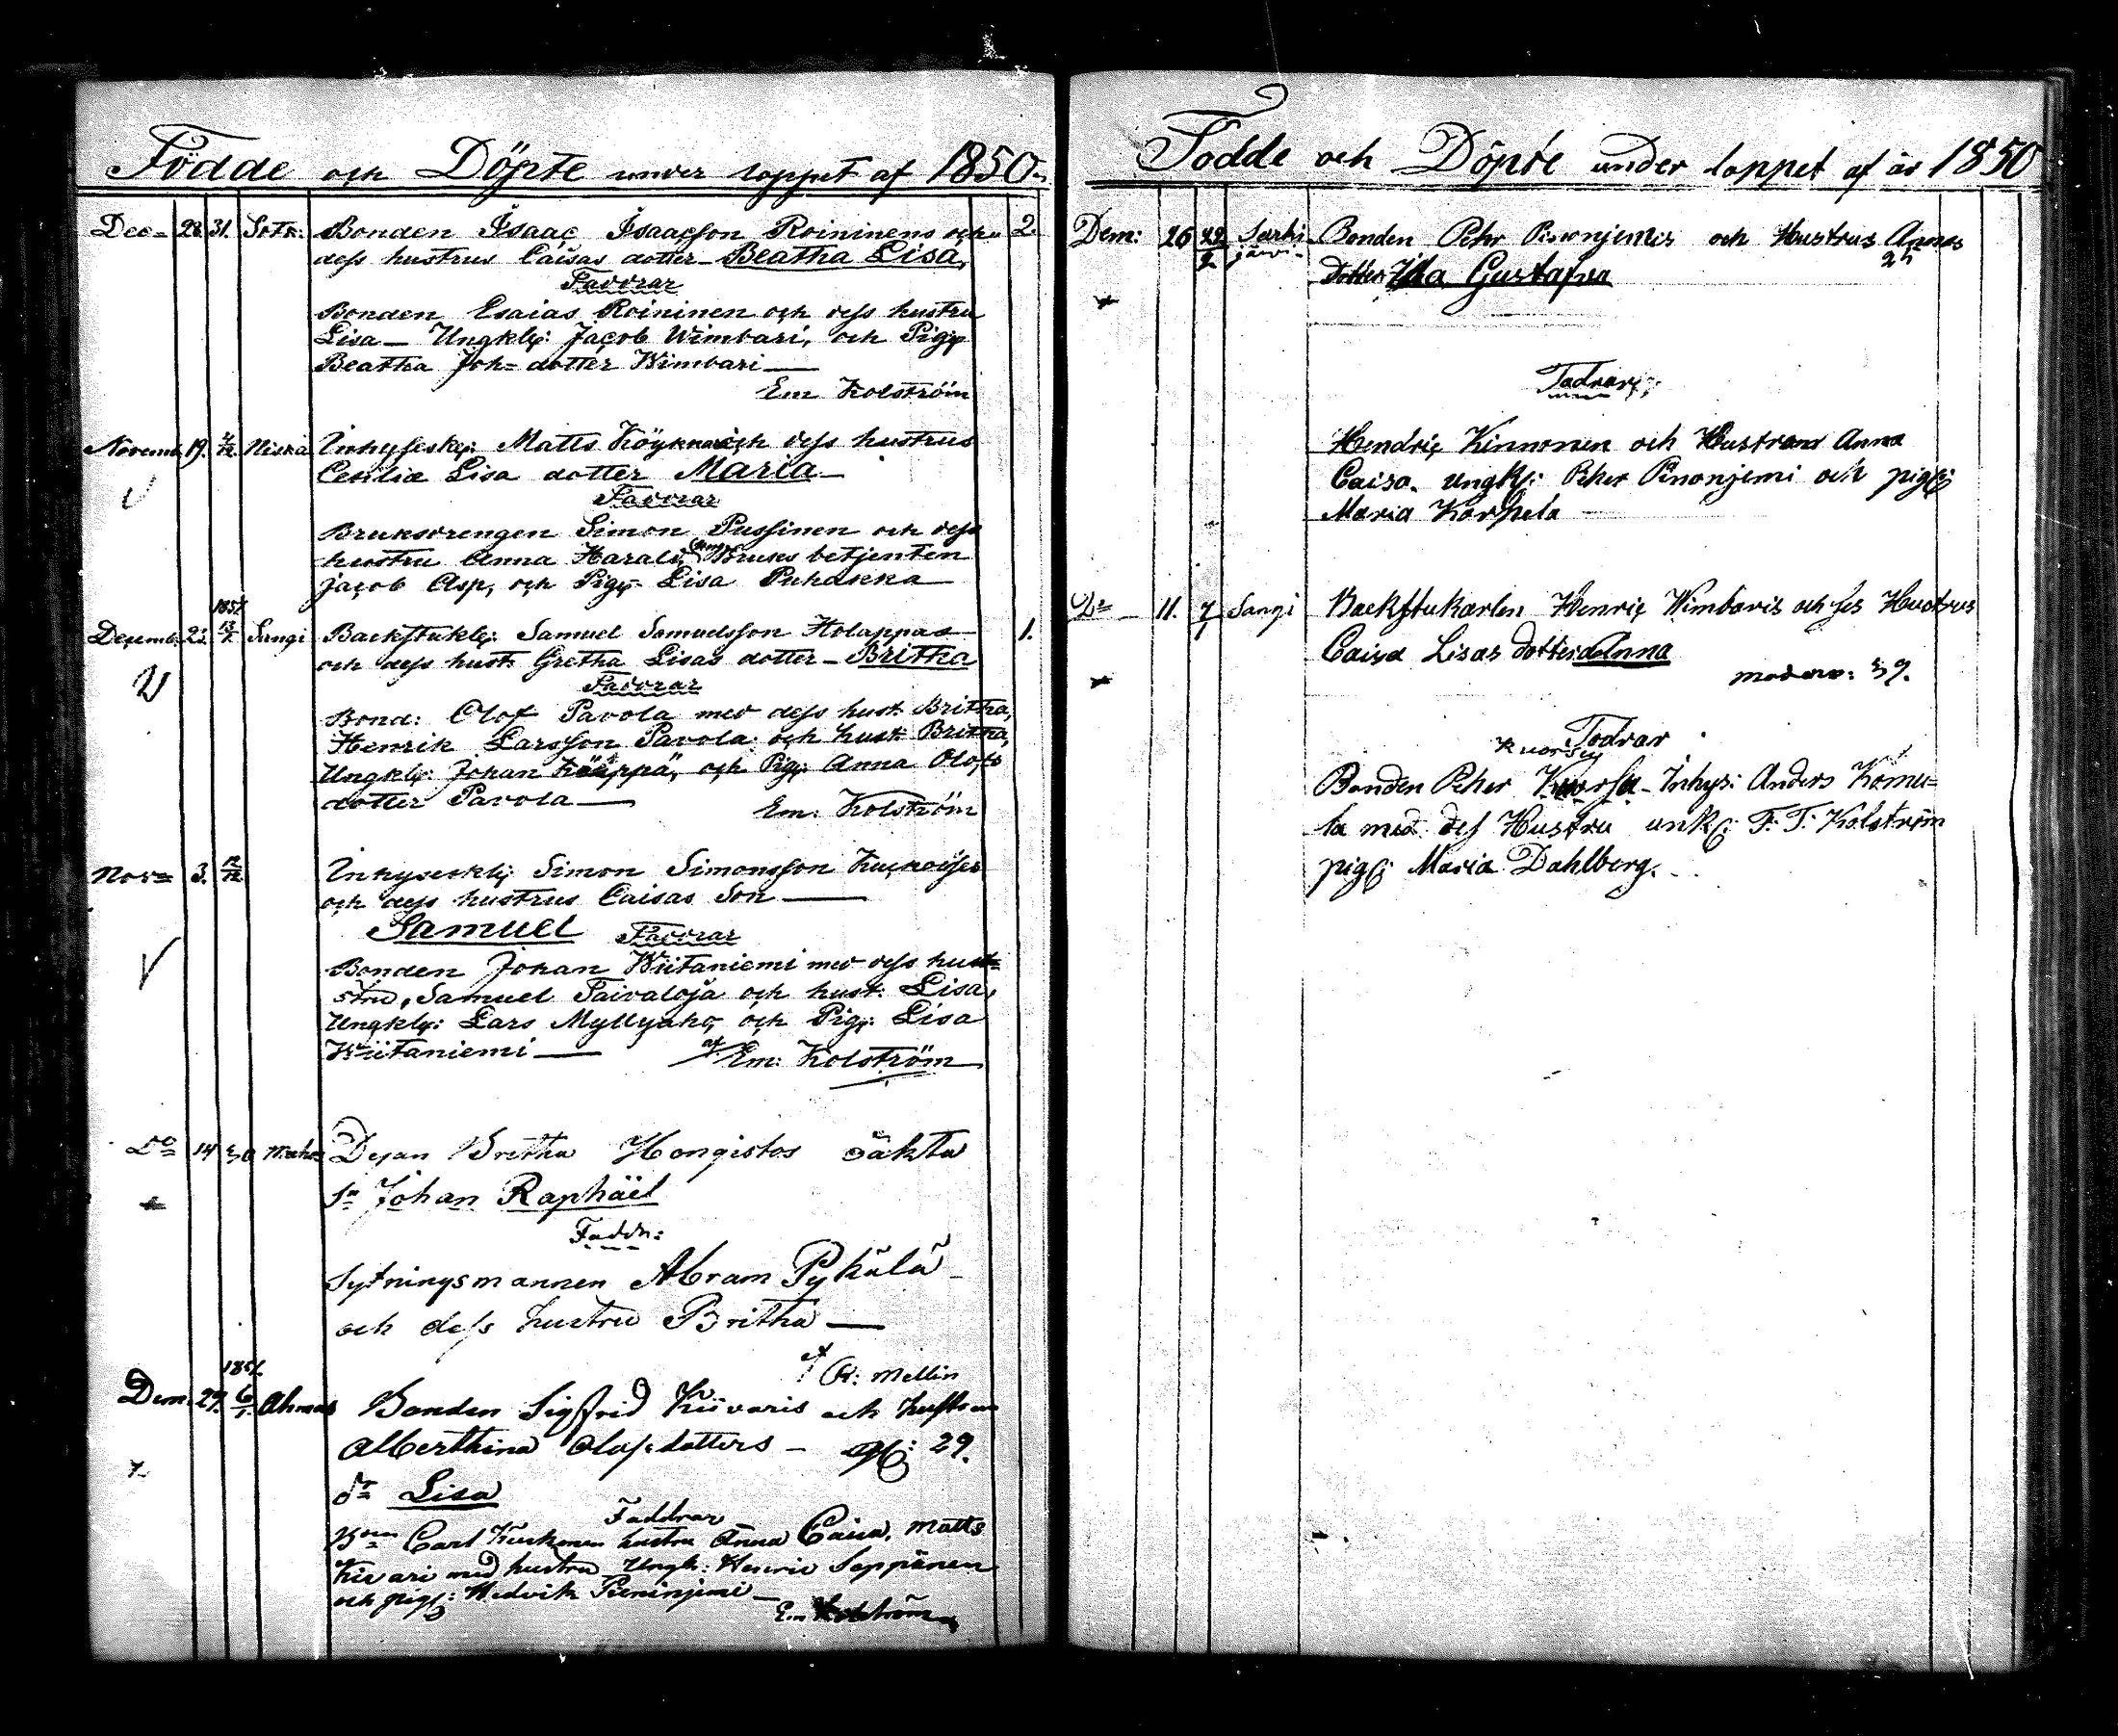 Födde och Döpte under loppet af 1850.
Dec= 28. 31. Sotk: Bonden Isaac Isaacsson Roininens och 2.
dess hustrus Caisas dotter - Beatha Lisa,
Faddrar
Bonden Esaias Roininen och dess hustru
Lisa — Ungkl: Jacob Wimbari, och Pig:
Beatha Joh= dotter Wimbari —
Em Kolström
Novemb. 19. Niska Inhyseskl: Matts och dess hustrus
Cecilia Lisa dotter Maria —
Faddrar
Bruksdrengen Simon Pussinen och dess
hustru Anna Harald, Bruks betjenten
Jacob Asp, och Pig: Lisa Puhakka —
1851.
Decemb. 13/1. Sangi Backstukl: Samuel Samuelsson Holappas 1.
och dess hust: Gretha Lisas dotter - Britha
Faddrar
Bond: Olof Pavola med dess hust: Britha,
Henrik Larsson Pavola och hust: Britha,
Ungkl: Johan och Pig: Anna Olofs
dotter Pavola — Em: Kolström
Nov= 3. Inhyseskl: Simon Simonsson
och dess hustrus Caisas Son —
Samuel Faddrar
Bonden Johan Wiitaniemi med dess hust=
stru, Samuel Taivaloja och hust: Lisa,
Ungkl: Lars Myllyaho, och Pig: Lisa
Wiitaniemi — af Em: Kolström
Do 14 30 Dejan Britha Hongistos oäkta
Sn Johan Raphäel
Faddr:
Sytningsmannen Abram Pykälä
och dess hustru Britha —
af A: Mellin
1851.
Dem. 29. 6/1. Ahmas Bonden Sigfrid Kiivaris och hustrus
Alberthina Olofsdotters — 29.
dr Lisa
Faddrar
Bden Carl hustru Anna Caisa, Matts
Kiivari med hustru Ungk: Henric Seppänen
och pig: Hedvik —
Em Kolström
Födde och Döpte under loppet af år 1850
Dem: 26 Särki
järvi Bonden Pehr Pinonjemis och Hustrus Annas
dotter Ida Gustafva
Fadrar:
Hendric Kinnonen och Hustrun Anna
Caisa. Ungk: Peher Pinonjemi och pig:
Maria Karpela —
Do 11. Sangi Backstukarlen Henric Wimbaris och des Hustrus
Caisa Lisas dotter Anna
modern: 39.
Fadrar
Bonden Peher Inhys: Anders Komu=
la med des Hustru unk: F: T: Kolström
pig: Maria Dahlberg.